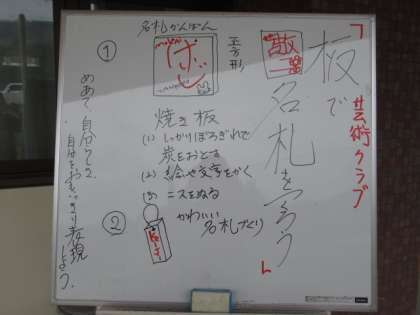 芸術クラブ
「板で
名札を作ろう」
敬二
正方形
名札かんばん
①
ばし
焼き板
(1) しっかりぼろぎれで
炭をおとす
(2) 絵や文字をかく
(3) ニスをぬる
②
かわいい
名札づくり
めあて 自分らしさ
自分をおもいっきり表現
しよう。